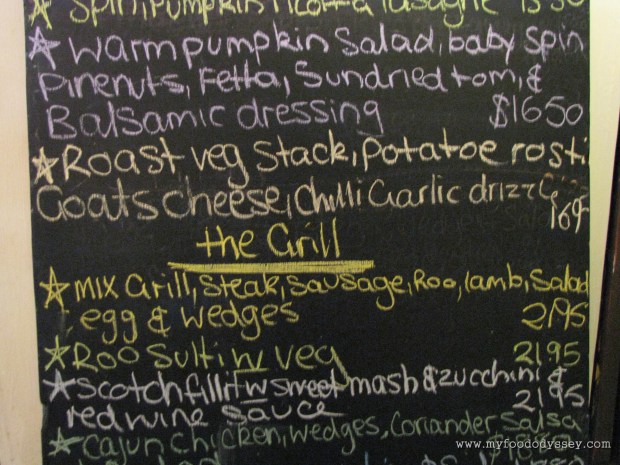 Spin, Pumpkin ricotta lasagne
☆ Warm pumpkin Salad, baby Spin
Pinenuts, Fetta, Sundried tom, &
Balsamic dressing $1650
☆ Roast veg Stack, Potatoe rosti
Goats cheese, Chilli Garlic drizzle
the Grill
☆ Mix Grill, steak, sausage, Roo, lamb, Salad
egg & wedges 2195
☆ Roo Sulti w veg 2195
☆ scotch fillit w sweet mash & zucchini &
red wine sauce 2195
☆ Cajun Chicken, wedges, Coriander Salsa
www.myfoododyssey.com